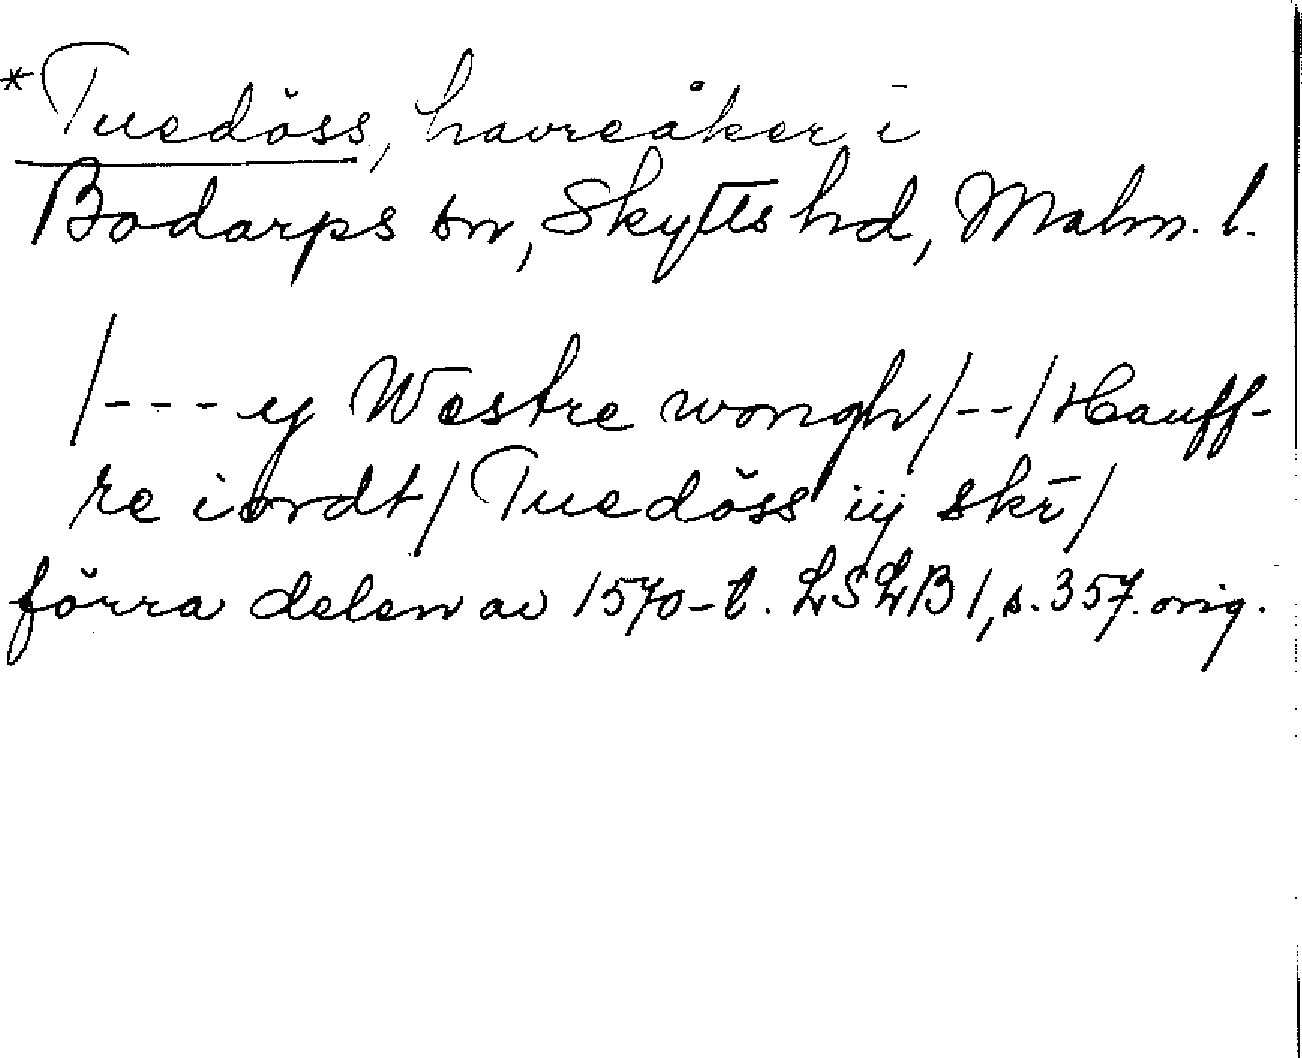 *Tuedöss, havreåker i
Bodarps sn, Skytts hd, Malm. l.
/--- ij Westre wongh/--/Hauff-
re iordt/Tuedöss iij skr/
förra delen av 1570-t. LSLB 1, s. 357. orig.